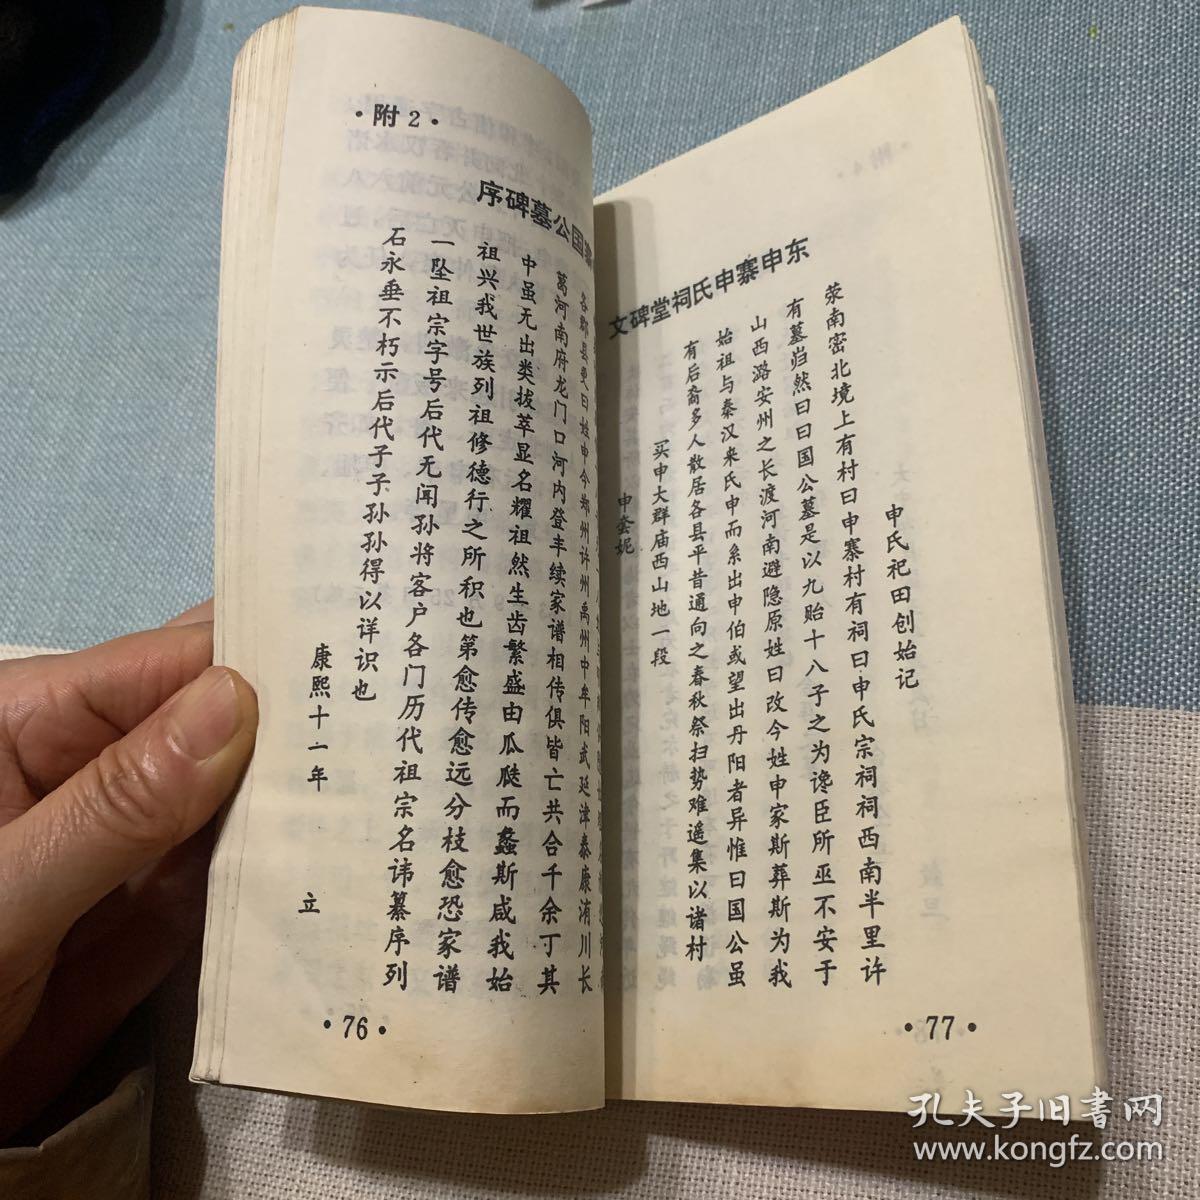 ·附2·
国公墓碑序
各郡县叟曰姓申今郑州许州禹州中牟阳武延津泰康洧川长
葛河南府龙门口河内登丰续家谱相传俱皆亡共合千余丁其
中虽无出类拔萃显名耀祖然生齿繁盛由瓜瓞而螽斯咸我始
祖兴我世族列祖修德行之所积也第愈传愈远分枝愈恐家谱
一坠祖宗字号后代无闻孙将客户各门历代祖宗名讳纂序列
石永垂不朽示后代子子孙孙得以详识也
康熙十一年 立
·76·
东申寨申氏祠堂碑文
申氏祀田创始记
荥南密北境上有村曰申寨村有祠曰申氏宗祠祠西南半里许
有墓岿然曰曰国公墓是以九贻十八子之为谗臣所巫不安于
山西潞安州之长渡河南避隐原姓曰改今姓申家斯葬斯为我
始祖与秦汉来氏申而系出申伯或望出丹阳者异惟曰国公虽
有后裔多人散居各县平昔通向之春秋祭扫势难遥集以诸村
买申大群庙西山地一段
申套妮
·77·
孔夫子旧书网
www.kongfz.com